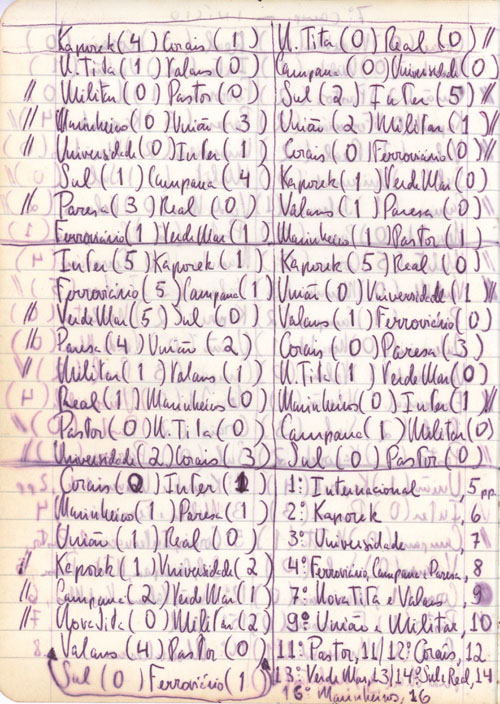 Kaporek (4) Corais (1)
N.Tita (1) Valaus (0)
// Militar (0) Pastor (0)
// Marinheiro (0) União (3)
// Universidade (0) Inter (1)
Sul (1) Campana (4)
// Paresa (3) Real (0)
Ferroviário (1) Verde Mar (1)
N.Tita (0) Real (0) //
Campana (0) Universidade (0)
Sul (2) Inter (5) //
União (2) Militar (1) //
Corais (0) Ferroviário (0) //
Kaporek (1) Verde Mar (0)
Valaus (1) Paresa (0)
Marinheiro (1) Pastor (1)
Inter (5) Kaporek (1)
Ferroviário (5) Campana (1)
// Verde Mar (5) Sul (0)
// Paresa (4) União (2)
// Militar (1) Valaus (1)
Real (1) Marinheiro (0)
Pastor (0) N.Tita (0)
Universidade (2) Corais (3)
Kaporek (5) Real (0)
União (0) Universidade (1) //
Valaus (1) Ferroviário (0)
Corais (0) Paresa (3)
N.Tita (1) Verde Mar (0)
Marinheiro (0) Inter (1) //
Campana (1) Militar (0)
Sul (0) Pastor (0)
Corais (0) Inter (1)
Marinheiro (1) Paresa (1)
União (1) Real (0)
// Kaporek (1) Universidade (2)
// Campana (2) Verde Mar (1)
// Nova Tita (0) Militar (2)
Valaus (4) Pastor (0)
Sul (0) Ferroviário (1)
1º: Internacional, 5 pp.
2º: Kaporek 6
3º: Universidade, 7
4º: Ferroviário, Campana e Paresa, 8
7º: Nova Tita e Valaus, 9
9º União e Militar, 10
11º: Pastor, 11/12º: Corais, 12
13º: Verde Mar, 13/14º: Sul e Real, 14
16º Marinheiros, 16